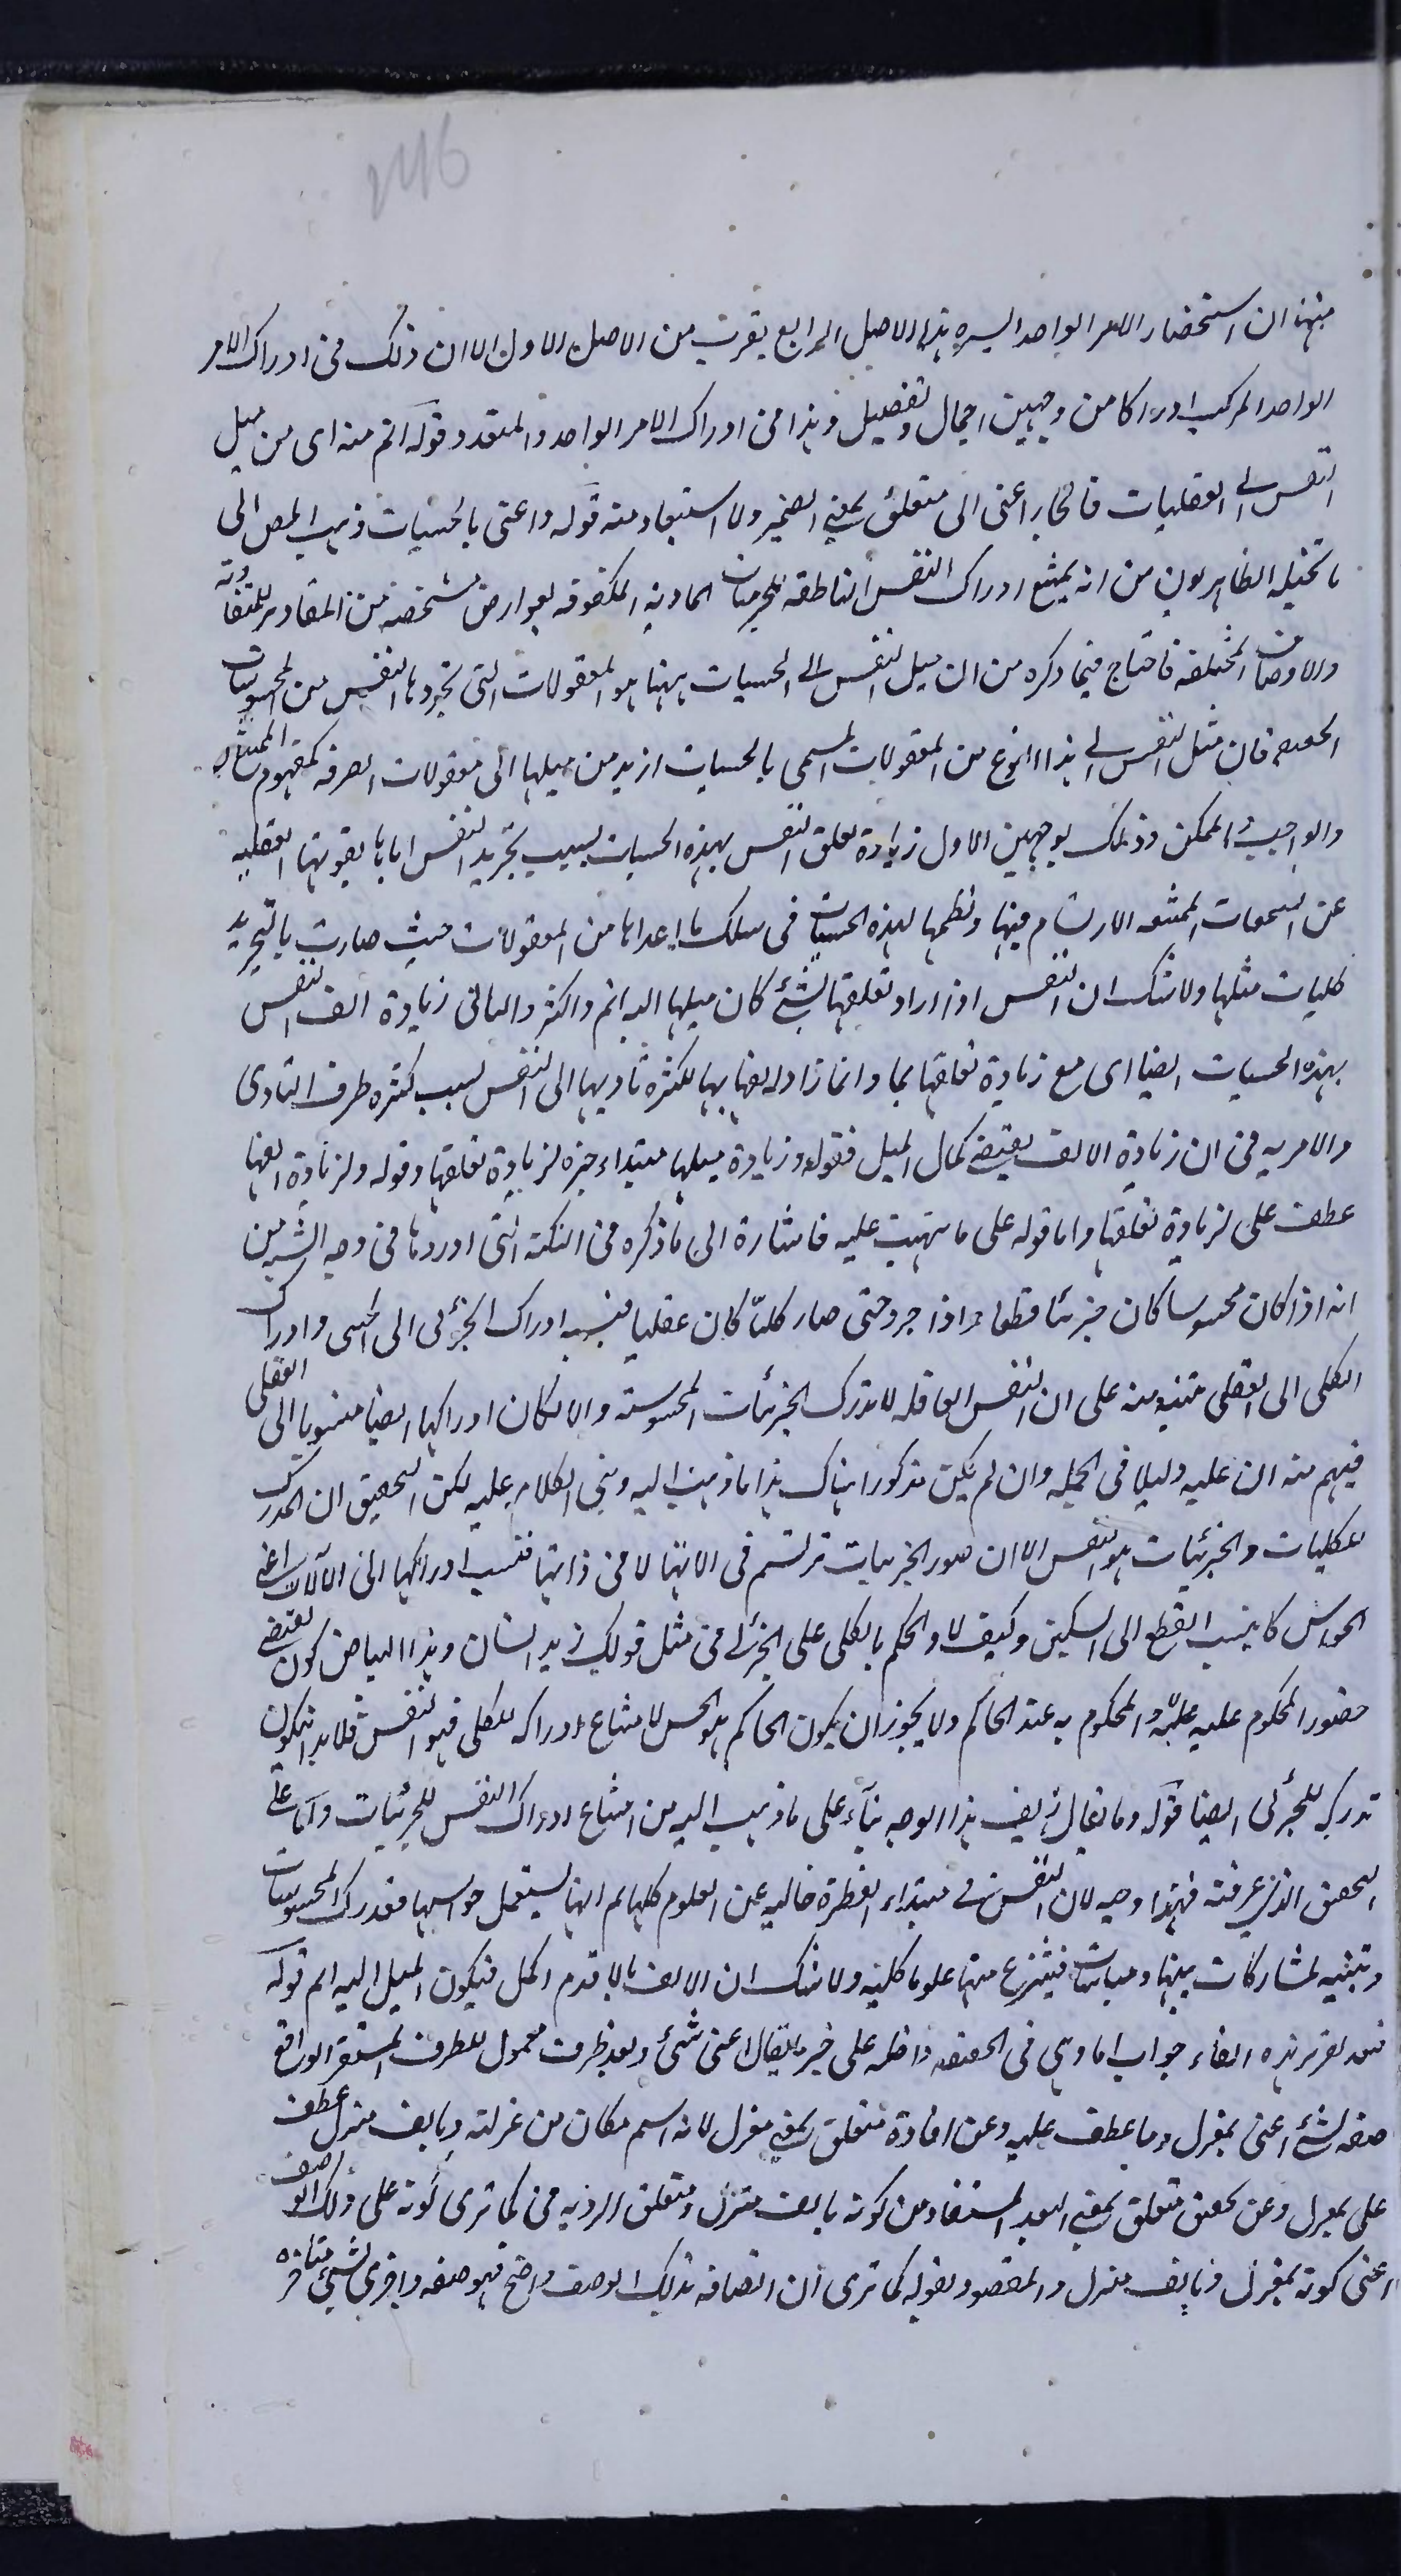 246
منها ان استحضار الامر الواحد اليسير هذا الاصل الرابع يقرب من الاصل الاول الا ان ذلك فى ادراك الامر
الواحد المركب ادراكا من وجهين اجمال وتفصيل وهذا فى ادراك الامر الواحد والمتعدد قوله اتم منه اى من ميل
النفس الى العقليات فالجار اعنى الى متعلق بمعنى الضمير ولا استبعاد منه قوله واعنى بالحسيات ذهب المص الى
ما تخيله الظاهريون من انه يمتنع ادراك النفس الناطقة للجزئيات المادية المكفوفة بعوارض مشخصة من المقادير المتفاوتة
والاوضاع المختلفة فاحتاج فيما ذكره من ان ميل النفس الى الحسيات ههنا هو المعقولات التى تجردها النفس من المحسوسات
فان ميل النفس الى هذا النوع من المعقولات المسمى بالحسيات ازيد من ميلها الى معقولات الصرفة كمفهوم الممتنع
والواجب والممكن وذلك بوجهين الاول زيادة تعلق النفس بهذه الحسيات بسبب تجريد النفس اياها بقوتها العقلية
عن الارتسام فيها ونظمها لهذه الحسيات فى سلك ما عداها من المعقولات حيث صارت بالتجريد
كليات مثلها ولا شك ان النفس اذا زاد تعلقها بشئ كان ميلها اليه اتم واكثر والثانى زيادة الف النفس
بهذه الحسيات ايضا اى مع زيادة تعلقها بها وانما زاد الفها بها لكثرة تاديها الى النفس بسبب كثرة طرف التادى
ولا مرية فى ان زيادة الالف يقتضى كمال الميل فقوله وزيادة ميلها مبتداء خبره لزيادة تعلقها وقوله ولزيادة الفها
عطف على لزيادة تعلقها واما قوله على ما نبهت عليه فاشارة الى ما ذكره فى النكتة التى اوردها فى وجه الشبه من
انه اذا كان محسوسا كان جزئيا قطعا واذا جرد حتى صار كليا كان عقليا فنسبة ادراك الجزئى الى الحس وادراك
الكلى الى العقلى تنبيه منه على ان النفس العاقلة لا تدرك الجزئيات المحسوسة والا لكان ادراكها ايضا منسوبا الى العقلى
فيهم منه ان عليه دليلا فى الجملة وان لم يكن مذكورا هناك هذا ما ذهب اليه وبنى الكلام عليه لكن التحقيق ان المدرك
للكليات والجزئيات هو النفس الا ان صور الجزئيات ترتسم فى الاتها لا فى ذاتها فنسب ادراكها الى الآلات اعنى
الحواس كما ينسب القطع الى السكين وكيف لا والحكم بالكلى على الجزئى فى مثل قولك زيد انسان وهذا البياض كون يقتضى
حضور المحكوم عليه والمحكوم به عند الحاكم ولا يجوز ان يكون الحاكم هو الحس لامتناع ادراكه للكلى فهو النفس فلا بد ان يكون
تدركه للجزئى ايضا قوله وما يقال زيف هذا الوجه بناء على ما ذهب اليه من امتناع ادراك النفس للجزئيات واما على
التحقيق الذى عرفته فهذا وجه لان النفس فى مبتداء الفطرة خالية عن العلوم كلها ثم انها تستعمل حواسها فتدرك المحسوسات
وتتنبه لمشاركات بينها ومباينات فتنتزع منها علوما كلية ولا شك ان الالف بالاقدم اكمل فيكون الميل اليه اتم قوله
فبعد تقرير هذه الفاء جواب اما وهى فى الحقيقة داخلة على خبر ما يقال اعنى شئ وبعد ظرف معمول للظرف المستقر الواقع
صفة لشئ اعنى بمعزل وما عطف عليه وعن افادة متعلق بمعنى معزل لانه اسم مكان من عزلته وبابعد منزل عطف
على بمعزل وعن تحقق متعلق بمعنى البعد المستفاد من كونه بابعد منزل ومتعلق الرؤية فى كما ترى كونه على ذلك الوصف
اعنى كونه بمعزل وبابعد منزل والمقصود بقوله كما ترى ان اتصافه بذلك الوصف واضح فهو صفة واخرى لشئ متاخرة